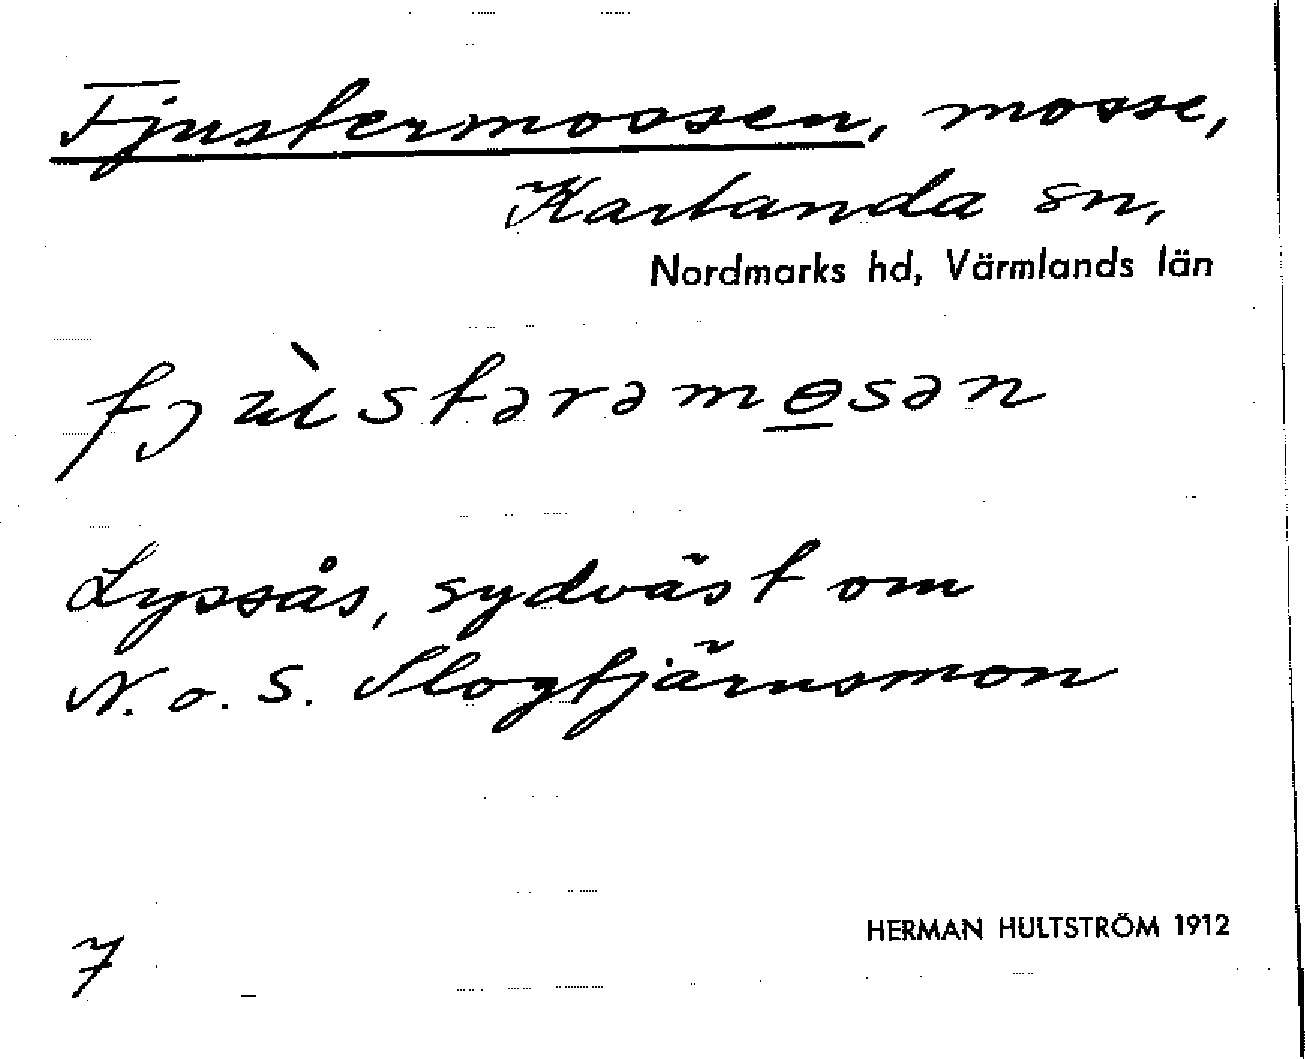 Fjustermoosen, mosse,
Karlanda sn,
Nordmarks hd, Värmlands län
fjùstərəmɵsən
Lyssås, sydväst om
N. o. S. Flogtjärnsmon
HERMAN HULTSTRÖM 1912
7